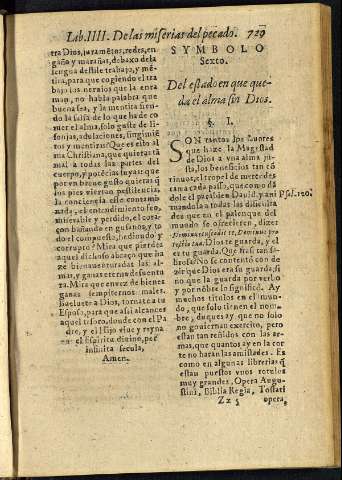 Lib. IIII. De las miserias del pecado. 729
era Dios, juramētos, redes, en
gaño y marañas, debaxo de la
lengua de este trabajo, y mē-
tira, para que cogiendo el tra
bajo los
no hablo palabra que
buena sea, y la mentira que
la salsa de lo que ha de co
mer el alma, solo guste de li-
sonjas, adulaciones, fingimiē
tos y mentiras: Que es esto al
ma Christiana, que quieras tā
mal a todas las partes del
cuerpo, y potēcias tuyas: que
por vn breue gusto quieras q̄
dos pies viertan pestilencia,
la conciencia este contami
nada, el entendimiento feo,
miserable y perdido, el cora-
çon bañando en gusanos, y to
do el compuesto, hediondo y
corrupto? Mira que pierdes
aquel dichoso abraço que ha
ze bienauenturadas las al-
mas, y ganas eterna desuentu
ra. Mira que en vez de bienes
ganas sempiternos males.
Bueluete a Dios, tornate a tu
Esposo, para que assi alcances
aquel tesoro, donde con el Pa
dre, y el Hijo viue y reyna
en el Espiritu diuino, per
infinita secula,
Amen.
SYMBOLO
Sexto.
Del estado en que que-
da el alma sin Dios.
§. I.
SON tantos los fauores
que haze la Magestad
de Dios a vna alma ju
sta, los beneficios tan cō
tinuos, el tropel de mercedes
tan a cada passo, que como dā
dole el parabien Dauid, y ani
mandola a todas las dificulta
des que en el palenque del
mundo se ofrecieren, dize:
Dominus custodit te, Dominus pro
tectio tua. Dios te guarda, y el
es tu guarda. Que frasi tan sa-
brosa? No se contentò con de
zir que Dios era su guarda, si
no que la guarda por verbo
y por nōbre lo significò. Ay
muchos titulos en el mun-
do, que solo tienen el nom-
bre, duques ay, que no solo
no gouiernan exercito, pero
estan tan reñidos con las ar-
mas, que quantos ay en la cor
te no haran las amistades. Es
como en algunas librerias q̄
estan puestos vnos rotulos
muy grandes, Opera Augu-
stini, Biblia Regia, Tostati
Psal. 120.
Zz 5 opera,